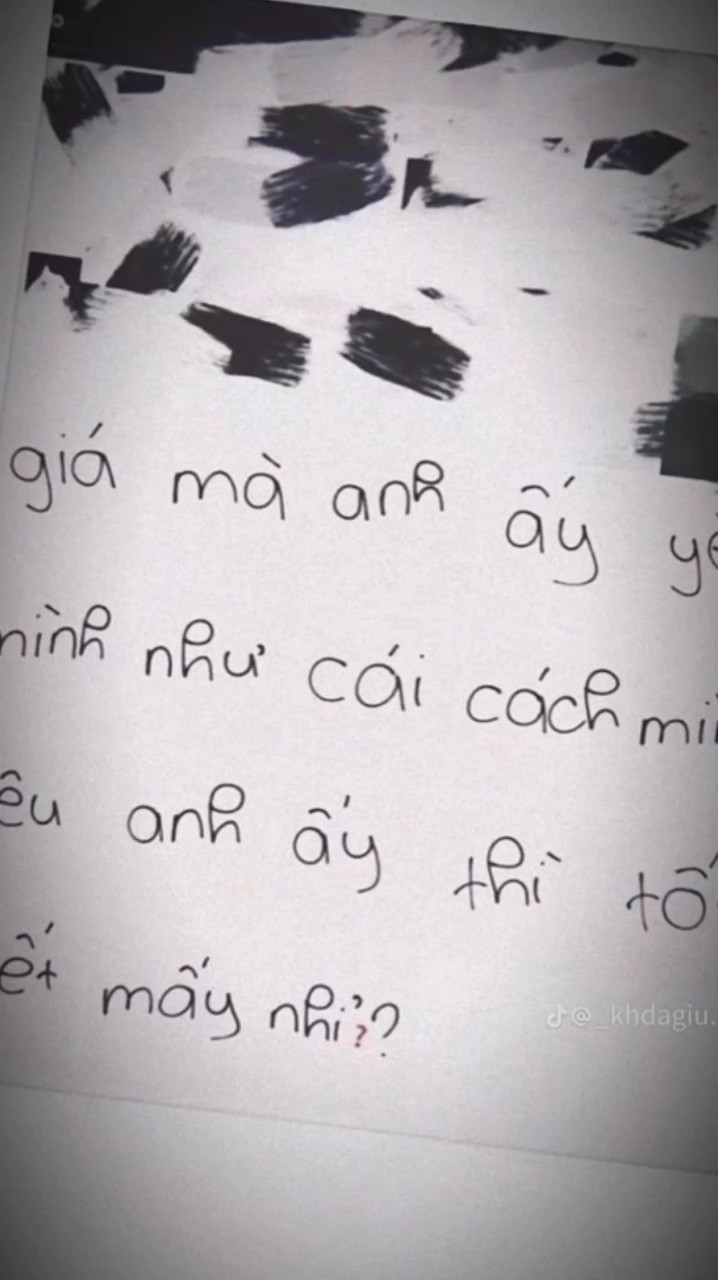 giá mà anh ấy yê
mình như cái cách mì
êu anh ấy thì tố
ết mấy nhỉ??
@_khdagiu.